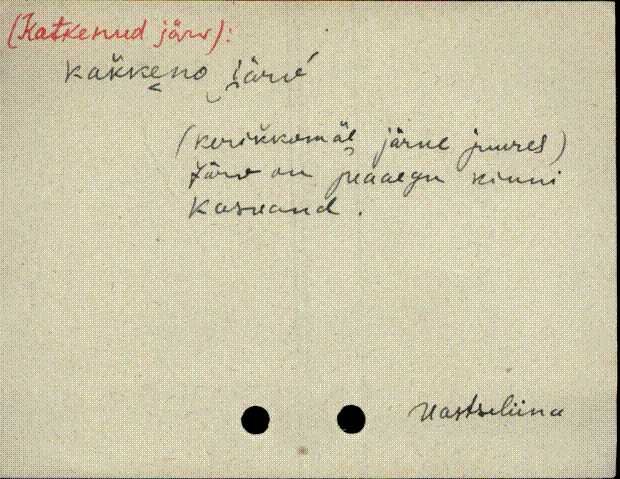 (Katkenud järv):
kakkeno järvé
(kerikkomäe järve juures)
Järv on peaaegu kinni
kasvand.
Vastseliina